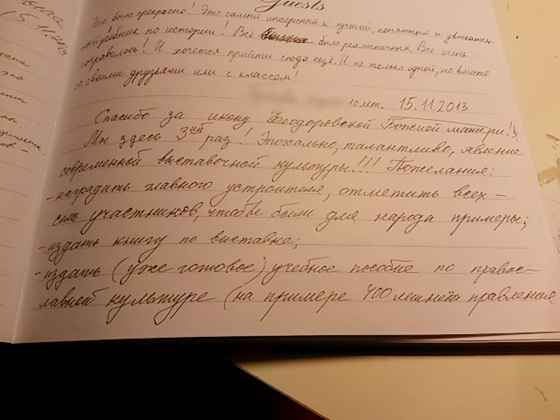 Guests
15.11.2013
Это было прекрасно! Это самый интересный и лучший, понятный и увлекатель-
ный учебник по истории! Всё было реалистичным. Все очень
понравилось! И хочется прийти сюда ещё. И не только одной, но вместе
со своими друзьями или с классом!
10 лет. 15.11.2013
Спасибо за икону Феодоровской Божией матери!!
Мы здесь 3ий раз! Эпохально, талантливо, явление
современной выставочной культуры!!! Пожелания:
- наградить главного устроителя, отметить всех -
участников, чтобы были для народа примеры;
- издать книгу по выставке;
- издать (уже готовое) учебное пособие по правос-
лавной культуре (на примере 400 летнего правления